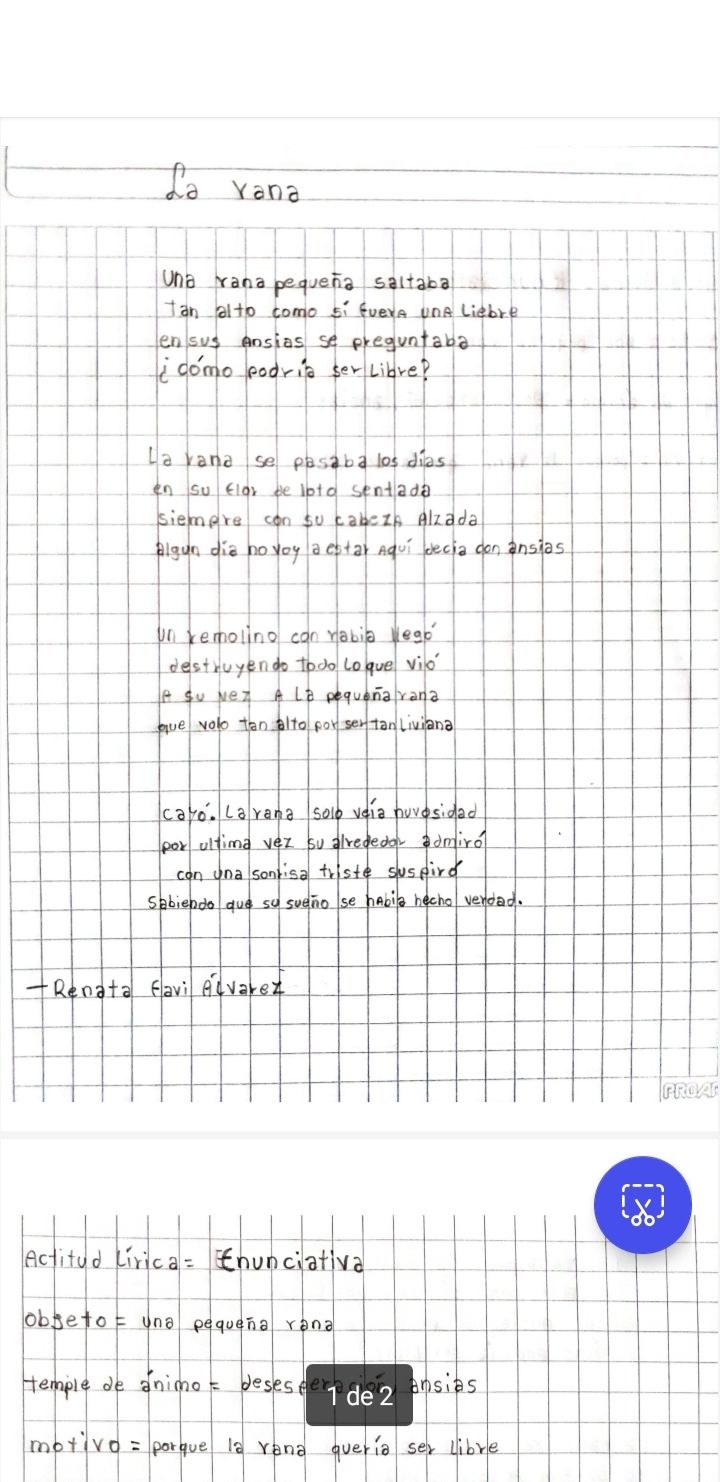 La rana
Una rana pequeña saltaba
Tan alto como sí fuera una Liebre
en sus Ansias se preguntaba
¿cómo podría ser Libre?
La rana se pasaba los días
en su flor de loto sentada
siempre con su cabeza Alzada
algun día no voy a estar Aquí decia con ansias
Un remolino con rabia llegó
destruyendo todo lo que vió
A su vez A La pequeña rana
que volo tan alto por ser tan Liviana
cayó. La rana solo veía nuvosidad
por ultima vez su alrededor admiró
con una sonrisa triste suspiró
Sabiendo que su sueño se había hecho verdad.
- Renata flavi Álvarez
Actitud Lírica = Enunciativa
objeto = una pequeña rana
temple de ánimo = desesperación, ansias
1 de 2
motivo = porque la rana quería ser libre